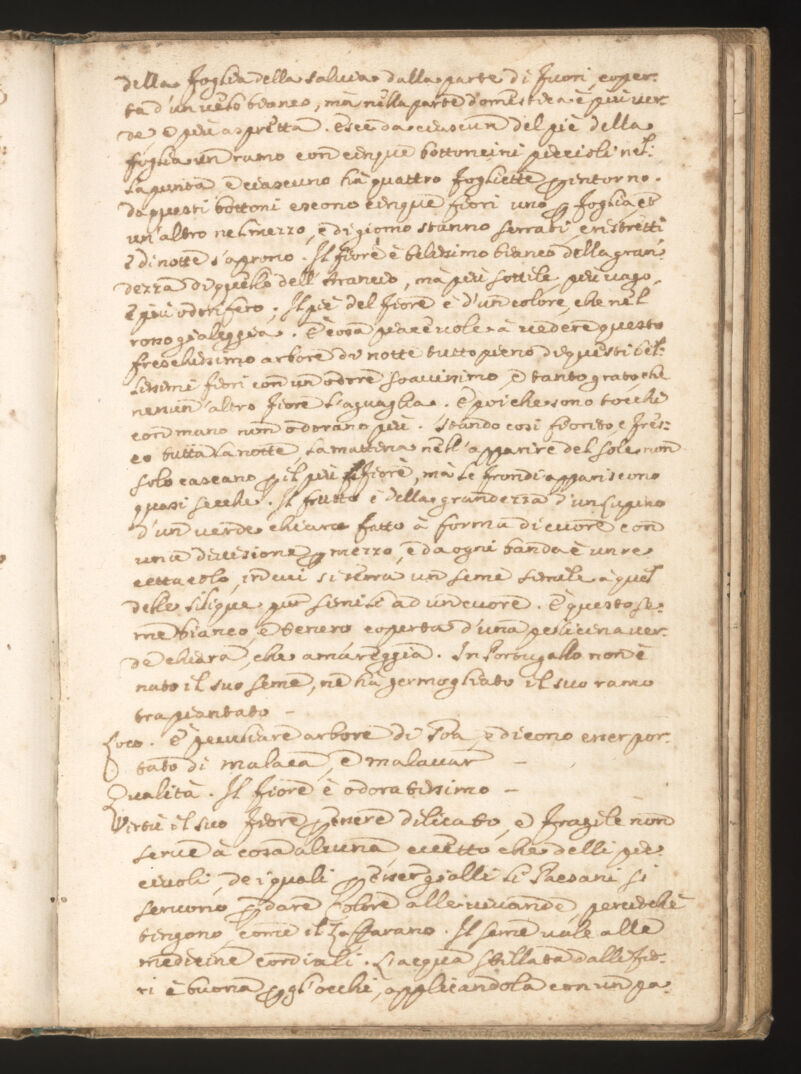 della foglia della salvia dalla parte di fuori, coper-
ta d'un velo bianco, mà nella parte domestica è più ver-
de e più aspretta. Esce da ciascun del piè della
foglia un ramo con cinque bottoncini piccioli nel-
la punta e ciascuno hà quattro fogliette ꝑ intorno.
da questi bottoni escono cinque fiori uno ꝑ foglia et
un altro nel mezzo, e di giorno stanno serrati, e ristretti
e di notte s'aprono. Il fiore è belissimo bianco della gran-
dezza di quello dell'Arancio, mà più sottile, più vago,
e più odorifero; Il piè del fiore è d'un colore, che nel
rosso gialeggia. È cosa piacevole à vedere questo
freschissimo arbore di notte tutto pieno di questi bel-
lissimi fiori con un odore soavissimo, e tanto grato che
nessun altro fiore l'aguaglia. E poi che sono tocchi
con mano non odorano più. Stando così fiorito e fres-
co tutta la notte, la mattina nell'apparire del sole non
solo cascano ꝑ il più li fiore, mà le frondi appariscono
quasi secche. Il frutto è della grandezza d'un lupino
d'un verde chiaro fatto à forma di cuore con
una divisione ꝑ mezzo, e da ogni banda è un re
cettacolo, in cui si serra un seme simile à quel
delle silique pur simili ad un cuore. E questo se-
me bianco, e tenero coperta d'una pelicina ver-
de chiara, che amareggia. In Portugallo non è
nato il suo seme, ne hà germogliato il suo ramo
trapiantato –
Loco. È peculiare arbore di Goa, e dicono esser por-
tato di malaca, e malavar –
Qualità. Il fiore è odoratissimo –
Virtù il suo fiore ꝑ essere dilicatto, e fragile non
serve à cosa alcuna, eccetto che delli pic
ciuoli, de i quali ꝑ esser gialli li Paesani si
servono ꝑ dare colore alle vivande, perciòche
tingono, come il Zaffarano. Il seme vale alle
medicine cordiali. L'acqua stillata dalli fio-
ri è buona ꝑ gl'occhi, applicandola con un pa-